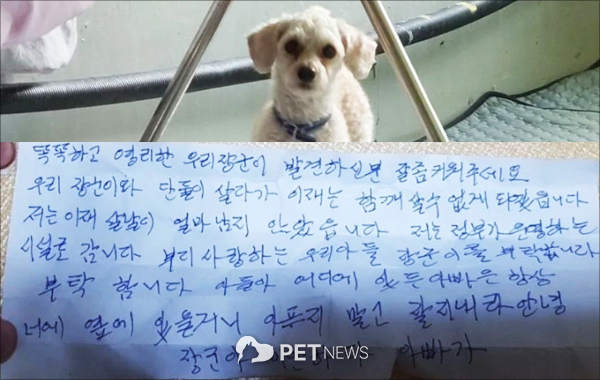 똑똑하고 영리한 우리장군이 발견하신분 잘좀키워주세요
우리 장군이와 단둘이 살다가 이제는 함께 살수 없게 되었읍니다
저는 이제 살날이 얼마 남지 안았읍니다 저는 정부가 운영하는
시설로 갑니다 부디 사랑하는 우리아들 장군이를 부탁합니다
부탁 합니다 아들아 어디에 있든 아빠은 항상
너에 옆에 있을거니 아프지 말고 잘지내라 안녕
PETNEWS
장군이 아빠가